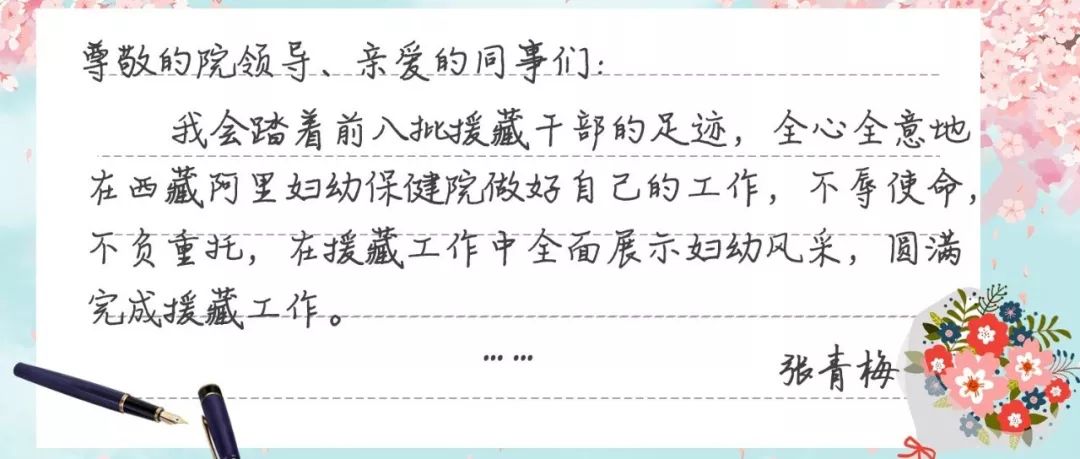 尊敬的院领导、亲爱的同事们：
我会踏着前八批援藏干部的足迹，全心全意地
在西藏阿里妇幼保健院做好自己的工作，不辱使命，
不负重托，在援藏工作中全面展示妇幼风采，圆满
完成援藏工作。
……
张青梅